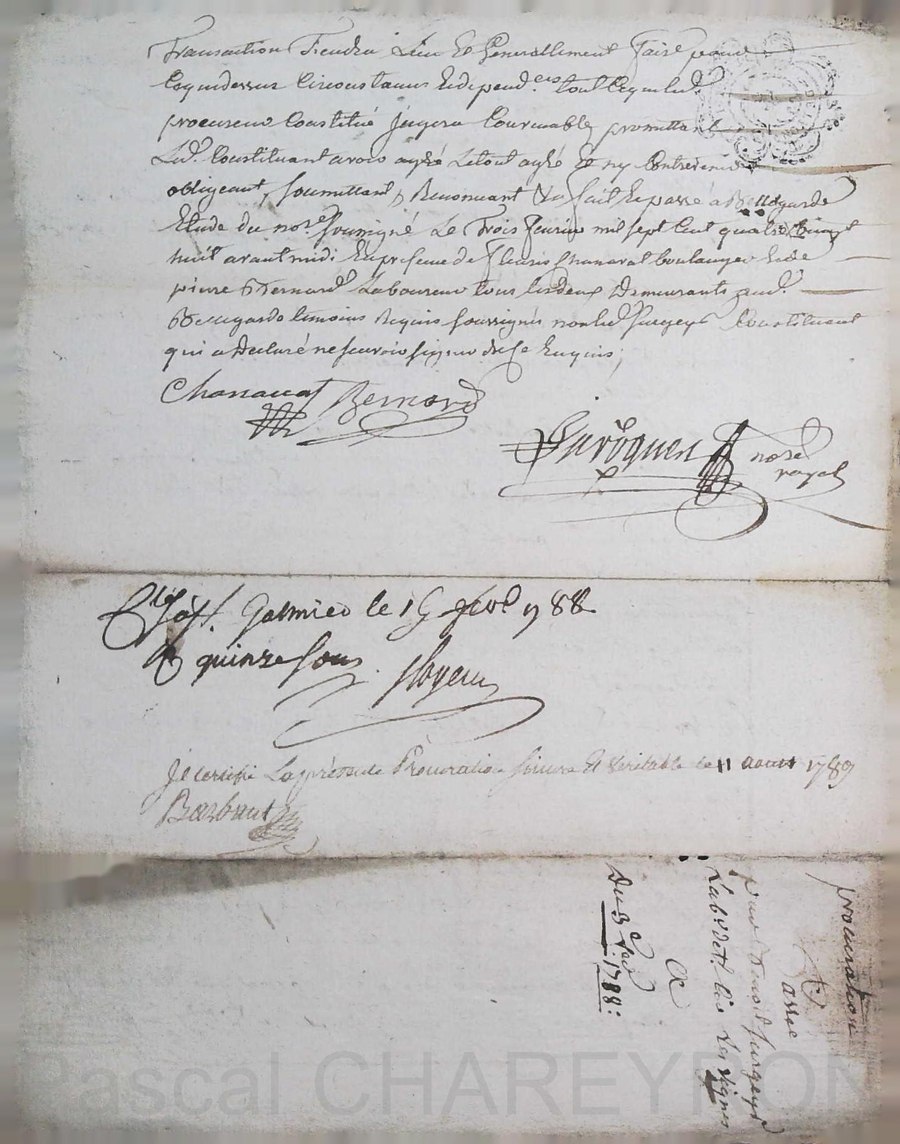 Transaction Tiendra Lieu Et Generallement faire pour
Cequidessus Circonstances Et dépend.ces tout Cequeled.
procureur Constitué jugera Convenable, promettant
Led. Constituant avoir agréé Letout agréé Et ny Contrevenir
obligeant, soumettant, Renonceant &a fait Et passé à Bellegarde
Etude du nore soussigné Le Trois fevrier mil sept Cent quatre vingt
huit avant midi En presence de fleuris Chanavat boulanger Et de
pierre Bernard Laboureur tous Lesdeux Demeurants aud.
Bellegarde temoins Requis soussignés non led. surgeys Constituant
qui a Declaré ne scavoir signer de ce Enquis,
Chanavat Bernard
nore
royal
Galmier le 15 fevr 1788
quinze sous
Je certifie La présente Procuration sincere Et Veritable le 11 aoust 1789
Barbaut
procuration
passée
par
surgeys
a
Du 3 fevr
1788:
Pascal CHAREYRON